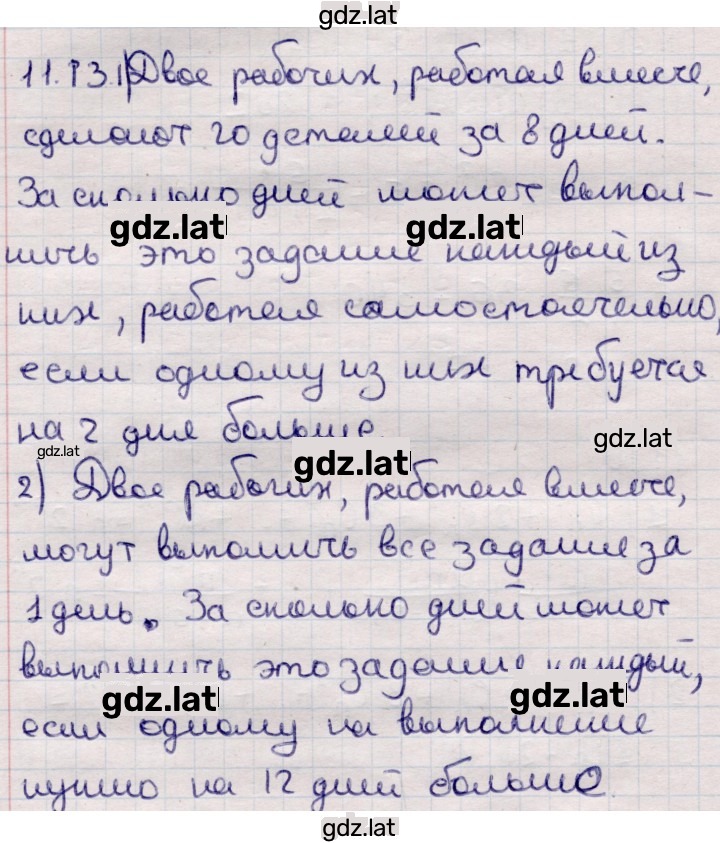 gdz.lat
11.13.1) Двое рабочих, работая вместе,
сделают 20 деталей за 8 дней.
За сколько дней может выпол-
gdz.lat gdz.lat
нить это задание каждый из
них, работая самостоятельно,
если одному из них требуется
на 2 дня больше.
gdz.lat gdz.lat gdz.lat
2) Двое рабочих, работая вместе,
могут выполнить все задание за
1 день. За сколько дней может
выполнить это задание каждый,
gdz.lat gdz.lat
если одному на выполнение
нужно на 12 дней больше
gdz.lat